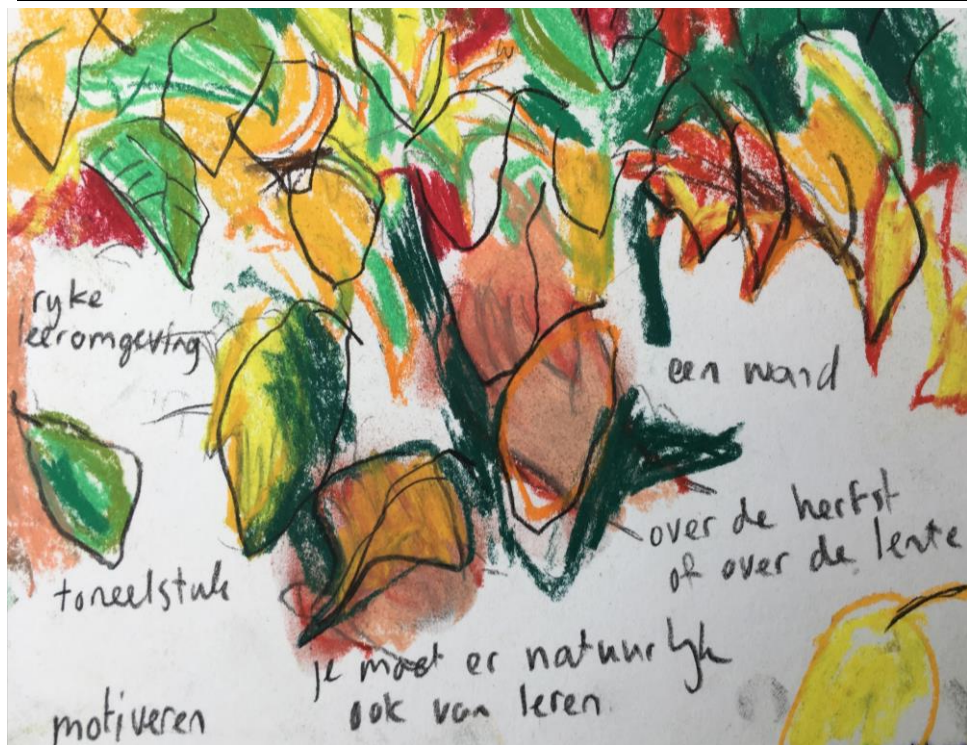 ryke
leeromgeving
een wand
over de herfst
of over de lente
toneelstuk
je moet er natuurlyk
ook van leren
motiveren